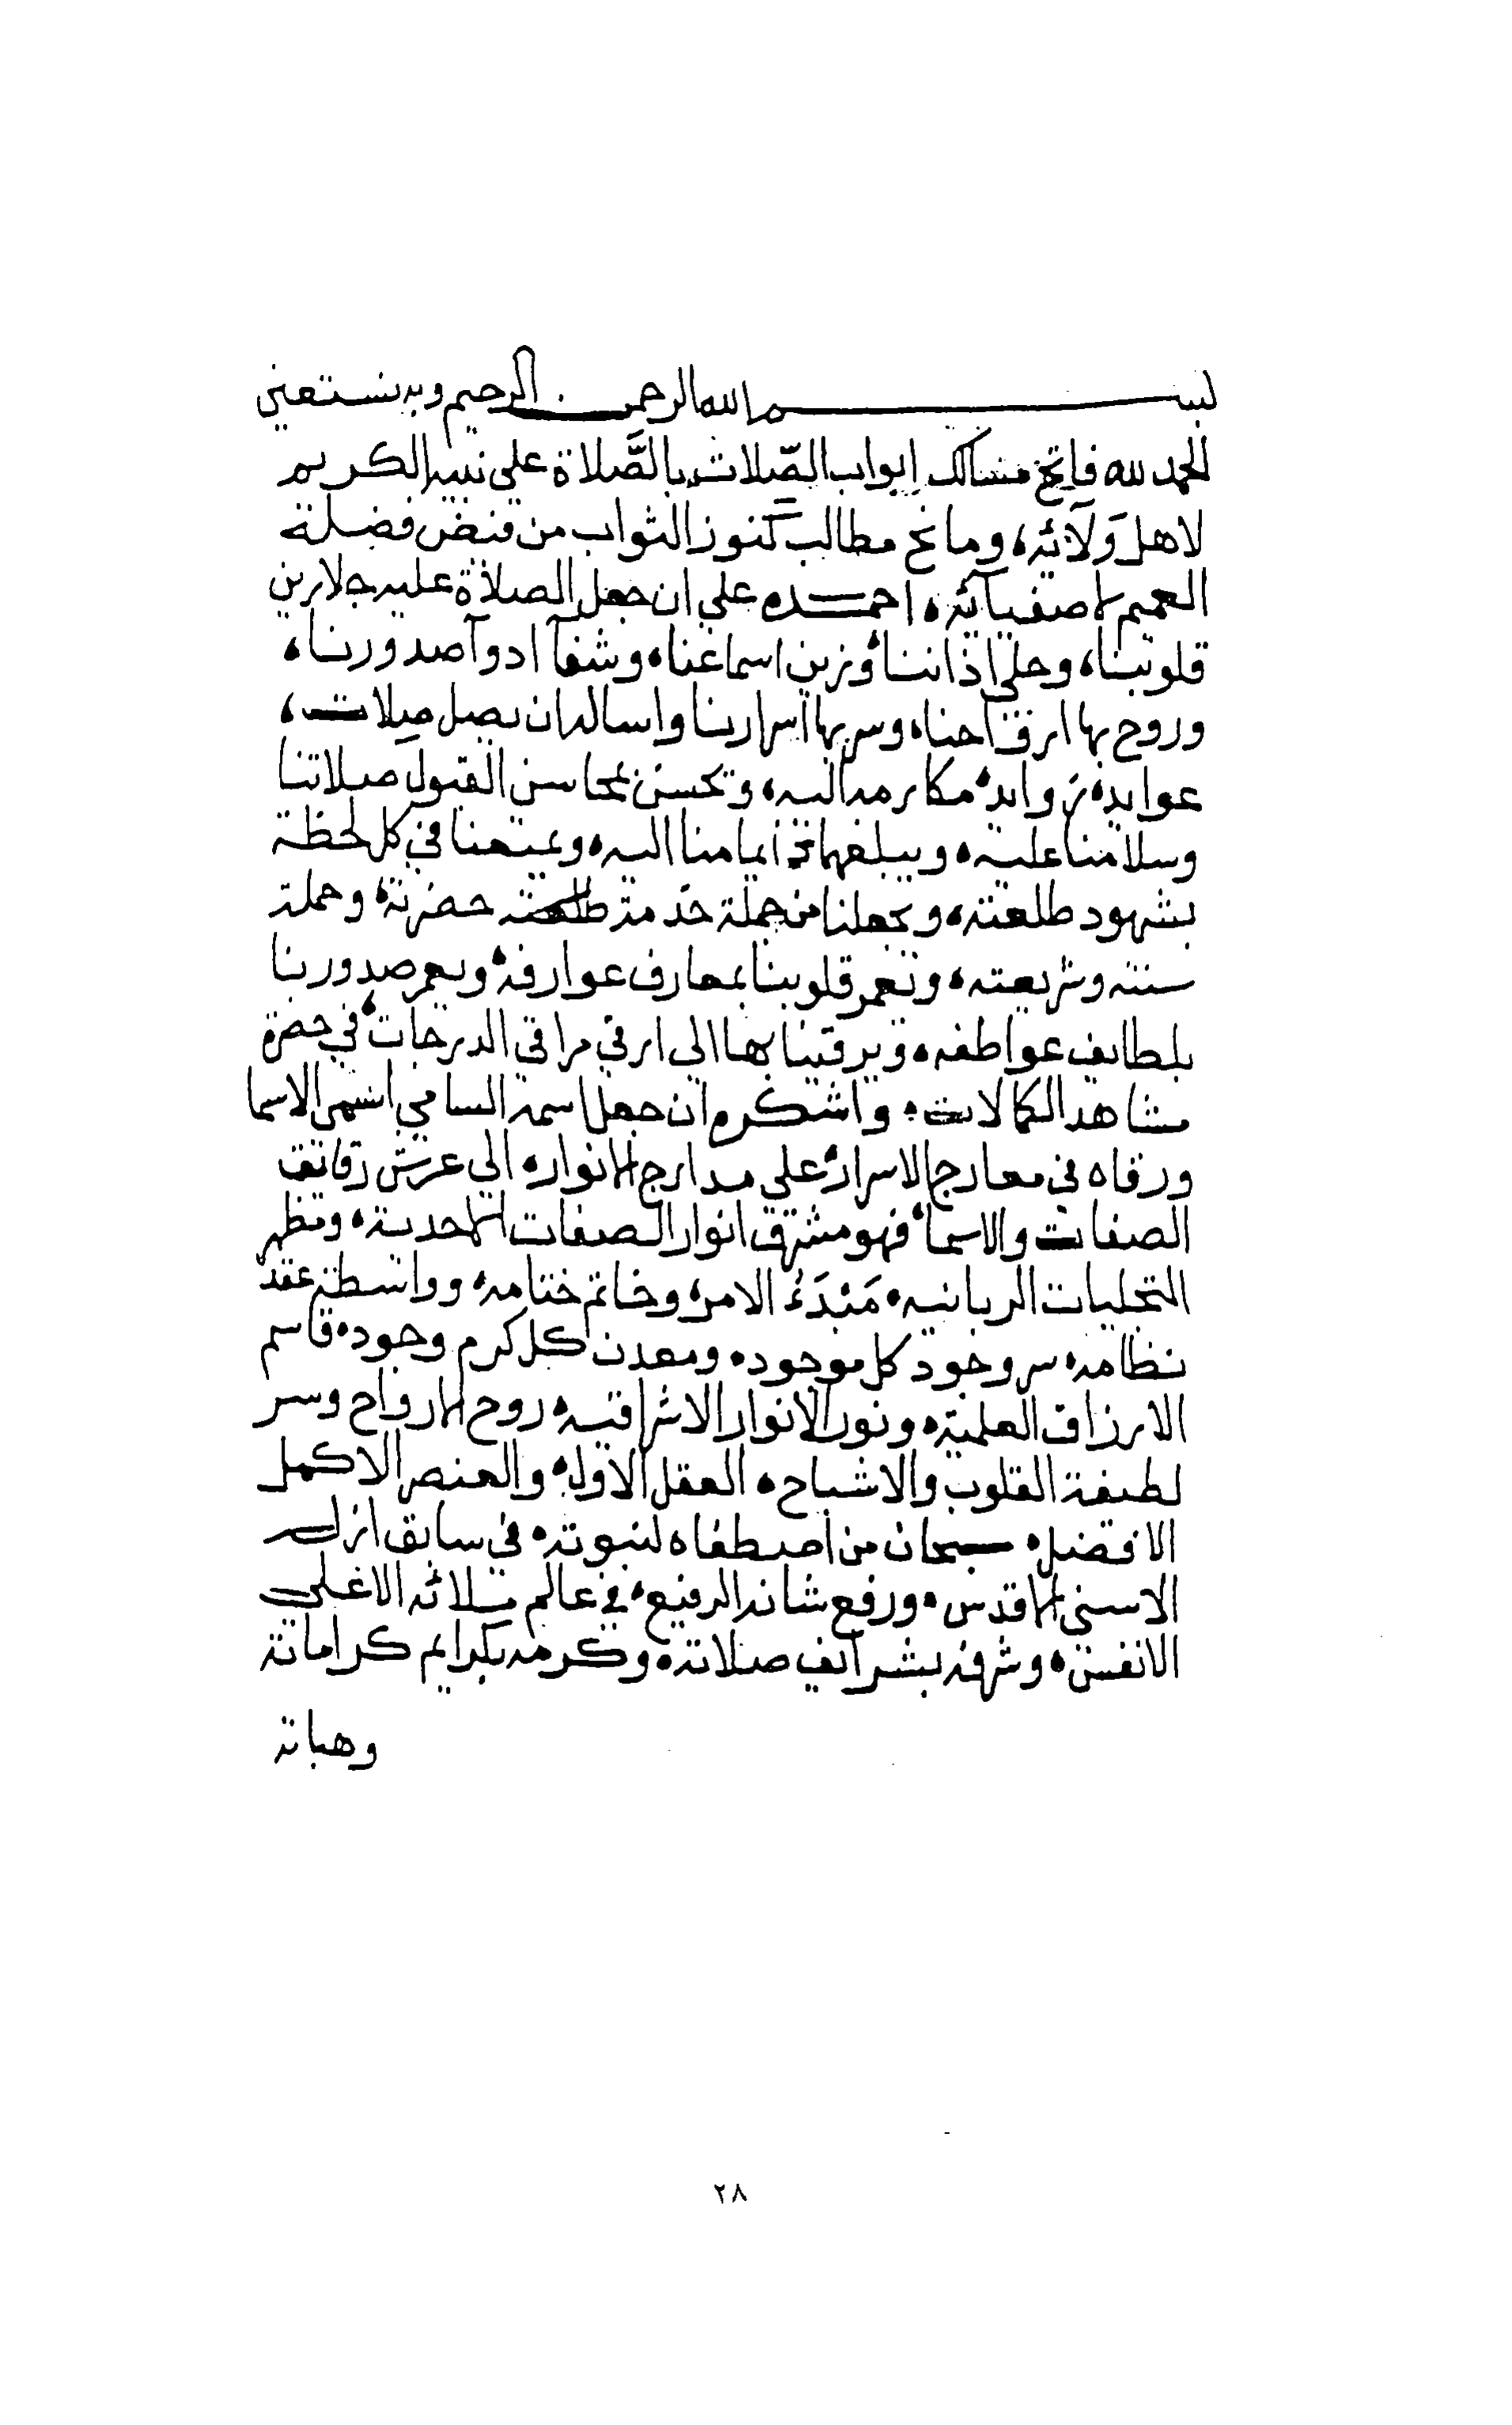 بسم الله الرحمن الرحيم وبه نستعين
الحمد لله فاتح مسالك ابواب الصّلات بالصَّلاة علي نبيه الكريم
لاهل وَلآئه، ومانح مطالب كنوز الثواب من فيض فضله
العميم لاصفيآئه، احمده علي ان جعل الصلاة عليه جلا رين
قلوبنا، وحلي اذاننا، وزين اسماعنا، وشفآ ادوآ صدورنا،
وروح بها ارواحنا، وسر بها اسرارنا واساله ان يصل صلات،
عوايده زوايد، مكارمه اليه، وتحسن بمحاسن القبول صلاتنا
وسلامنا عليه، ويبلغها ايامنا اليه، ويمتعنا في كل لحظة
بشهود طلعته، ويجعلنا من جملة خدمة حضرته، وحملة
سنته وشريعته، وتعمر قلوبنا بمعارف عوارفه، ويعمر صدورنا
بلطايف عواطفه، ويرقينا بها الي ارقي مراقي الدرجات، في حضرة
مشاهد الكمالات، واشكره ان جعل اسمه السامي اسمي الاسما
ورقاه في معارج الاسرار، علي مدارج الانوار، الي عرش رقائق
الصفات والاسما، فهو مشرق انوار الصفات الاحدية، ومظهر
التجليات الربانيه، مَبْدَءُ الامر، وخاتم ختامه، وواسطة عقد
نظامه، سر وجود كل موجود، ومعدن كل كرم وجود، قاسم
الارزاق العلمية، ونور الانوار الاشراقيه، روح الارواح وسر
لطيفة القلوب والاشباح، العقل الاول، والعنصر الاكمل
الافضل، سبحان من اصطفاه لنبوته، في سابق ازله
الاسني الاقدس، ورفع شانه الرفيع، في عالم الاعلي
الانفس، وشرفه بشرآيف صلاته، وكرمه بكرايم كراماته
وهباته
٢٨